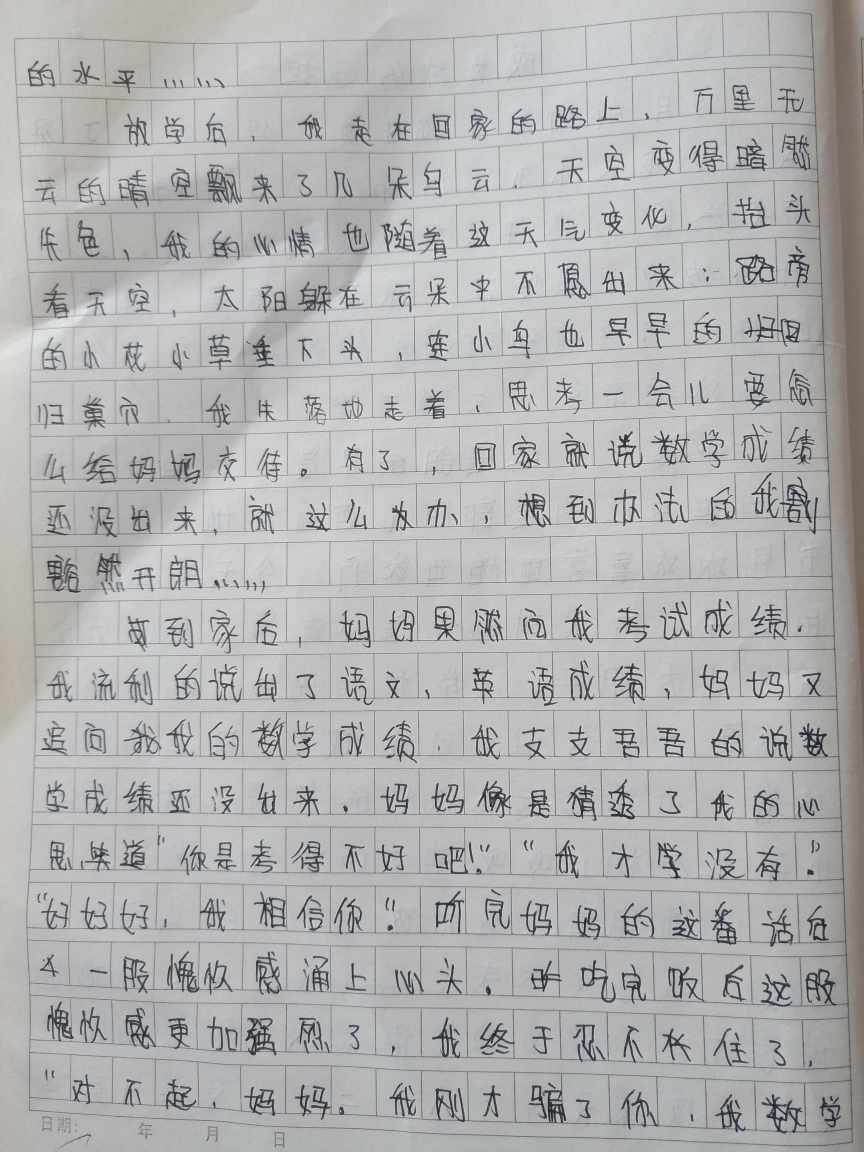 的水平……
放学后，我走在回家的路上，万里无
云的晴空飘来了几朵乌云．天空变得暗然
失色，我的心情也随着这天气变化，抬头
看天空，太阳躲在云朵中不愿出来；路旁
的小花小草垂下头，连小鸟也早早的
归巢穴．我失落地走着，思考一会儿要怎
么给妈妈交待。有了，回家就说数学成绩
还没出来，就这么办，想到办法的我
豁然开朗……
到家后，妈妈果然问我考试成绩．
我流利的说出了语文、英语成绩，妈妈又
追问我的数学成绩．我支支吾吾的说数
学成绩还没出来．妈妈像是猜透了我的心
思，笑道“你是考得不好吧！”“我才学没有．”
“好好好，我相信你”．听完妈妈的这番话后
一股愧疚感涌上心头．吃完饭后这股
愧疚感更加强烈了，我终于忍不住了．
“对不起，妈妈。我刚才骗了你，我数学
日期： 年 月 日